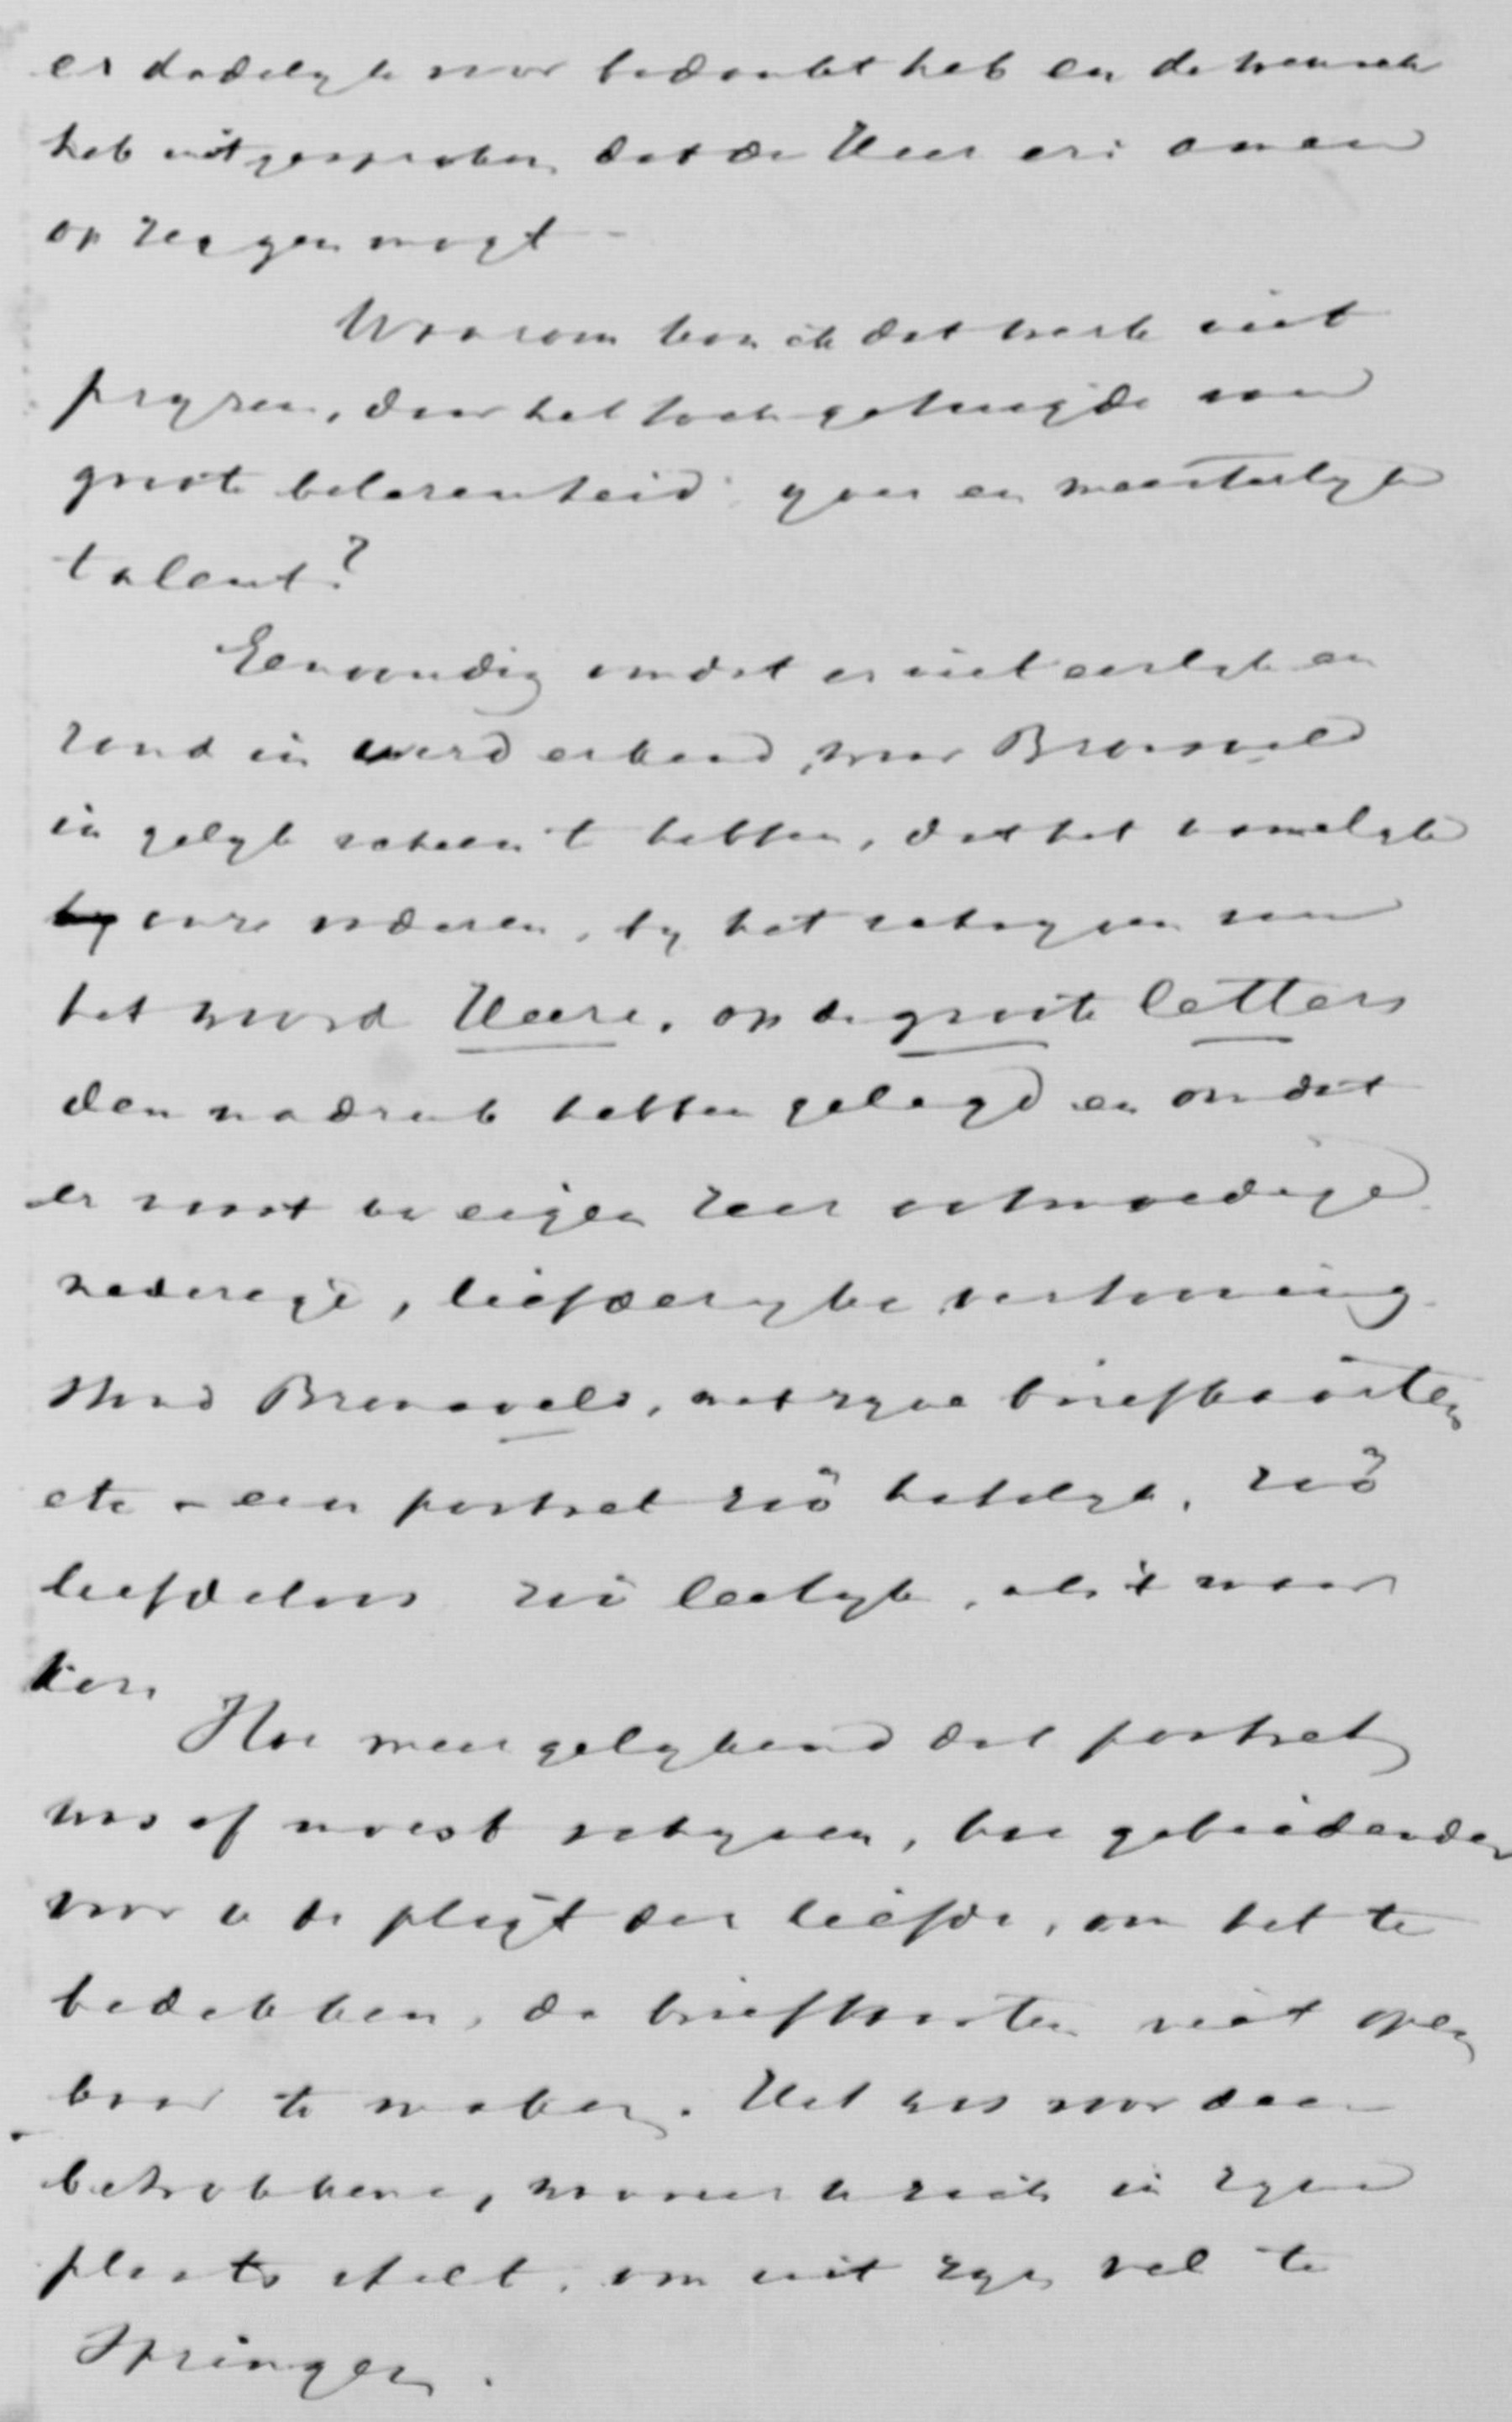 er dadelyk voor bedankt heb en de wensch
heb uitgesproken dat de Heer er: amen
op zeggen mogt -
Waarom kon ik dat werk niet
pryzen, daar het toch getuigde van
groote belezenheid yver en meesterlyk
talent?
Eenvoudig omdat er niet eerlyk en
rond in werd erkend, waar Bronsveld
in gelyk scheen te hebben, dat het namelyk
by onze vaderen, by het schryven van
het woord Heere, op de groote letters
den nadruk hebben gelegd en omdat
er naast uw eigen zeer ootmoedige
nederige, liefderyke vertooning
stond Bronsveld, met zyne briefkaarten
etc - een portret zóó hatelyk, zóó
liefdeloos zóó leelyk, als 't maar
kon.
Hoe meer gelykend dat portret
was of moest schynen, hoe gebiedender
voor u de pligt der liefde, om het te
bedekken, de briefkaarten niet open
baar te maken. Het was voor den
betrokkene, wanneer ik mich in zyne
plaats stelt, om uit zyn vel te
springen.